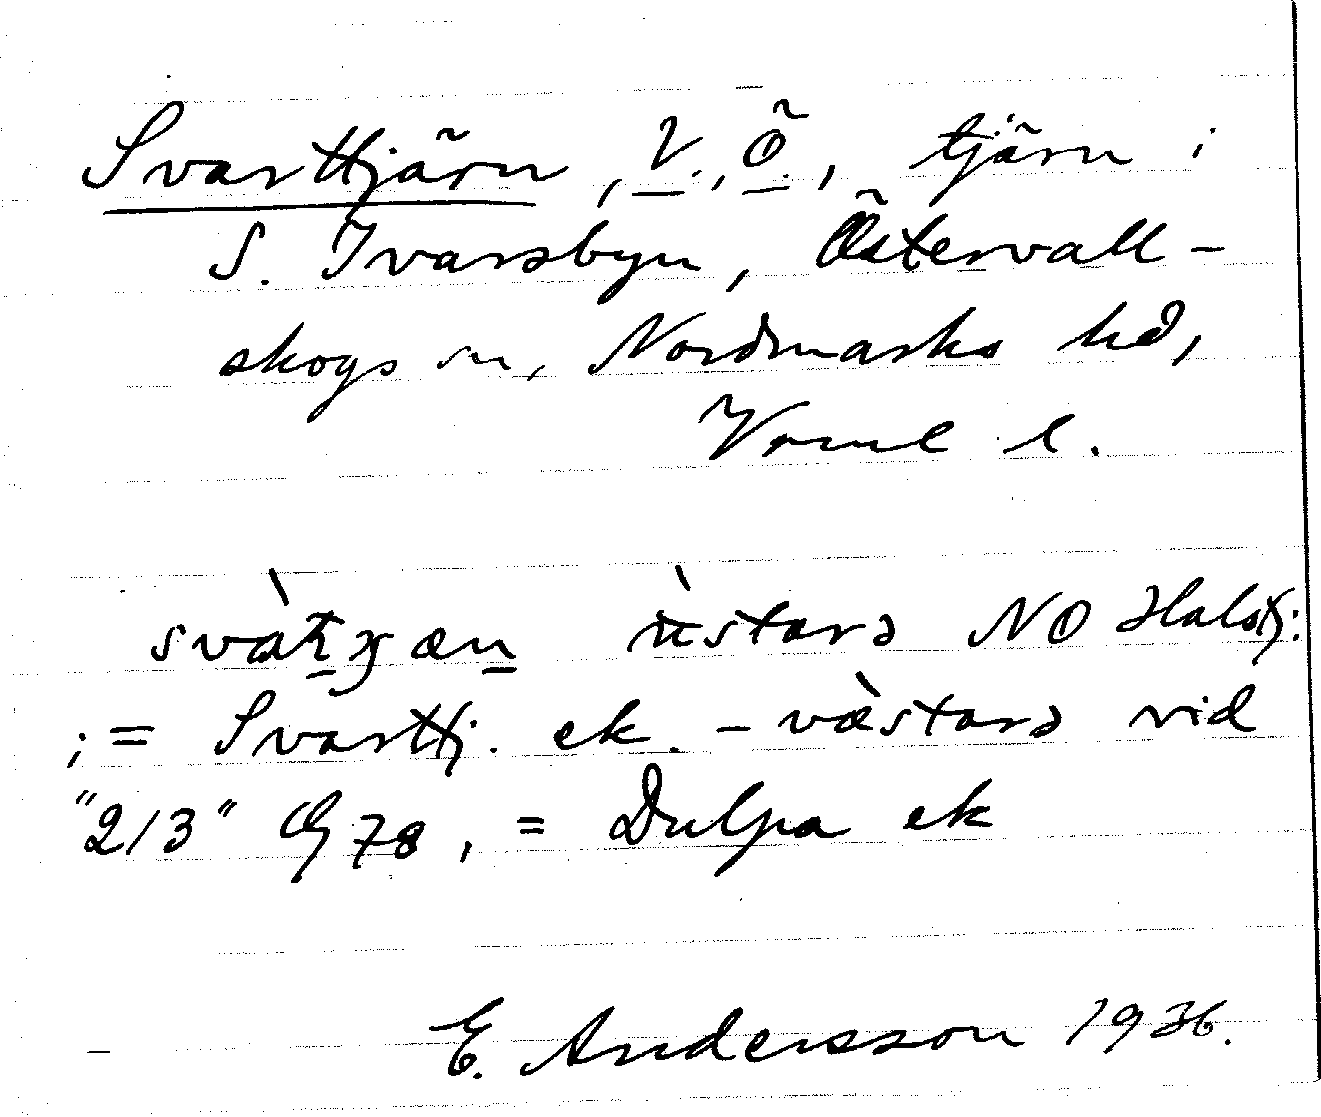 Svarttjärn, V., Ö., tjärn i
S. Ivarsbyn, Östervall-
skogs sn, Nordmarks hd,
Vrml l.
ùstarə NO Halstj:
; = Svarttj. ek. - væ̀starə vid
"213" Cg 78, = Dulpa ek
E. Andersson 1936.